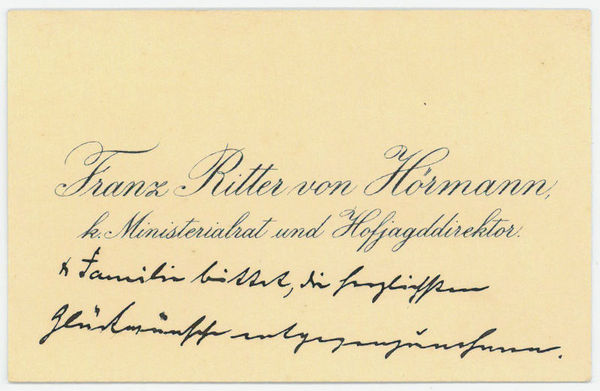 Franz Ritter von Hörmann,
k. Ministerialrat und Hofjagddirektor.
& Familie bittet, die herzlichsten
Glückwünsche entgegenzunehmen.